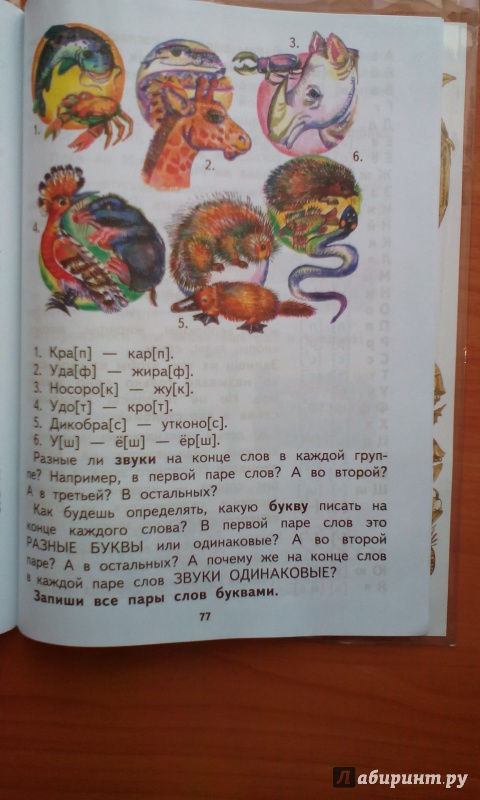 3.
1.
2.
6.
4.
5.
1. Кра[п] — кар[п].
2. Уда[ф] — жира[ф].
3. Носоро[к] — жу[к].
4. Удо[т] — кро[т].
5. Дикобра[с] — утконо[с].
6. У[ш] — ё[ш] — ёр[ш].
Разные ли звуки на конце слов в каждой груп-
пе? Например, в первой паре слов? А во второй?
А в третьей? В остальных?
Как будешь определять, какую букву писать на
конце каждого слова? В первой паре слов это
РАЗНЫЕ БУКВЫ или одинаковые? А во второй
паре? А в остальных? А почему же на конце слов
в каждой паре слов ЗВУКИ ОДИНАКОВЫЕ?
Запиши все пары слов буквами.
77
Лабиринт.ру